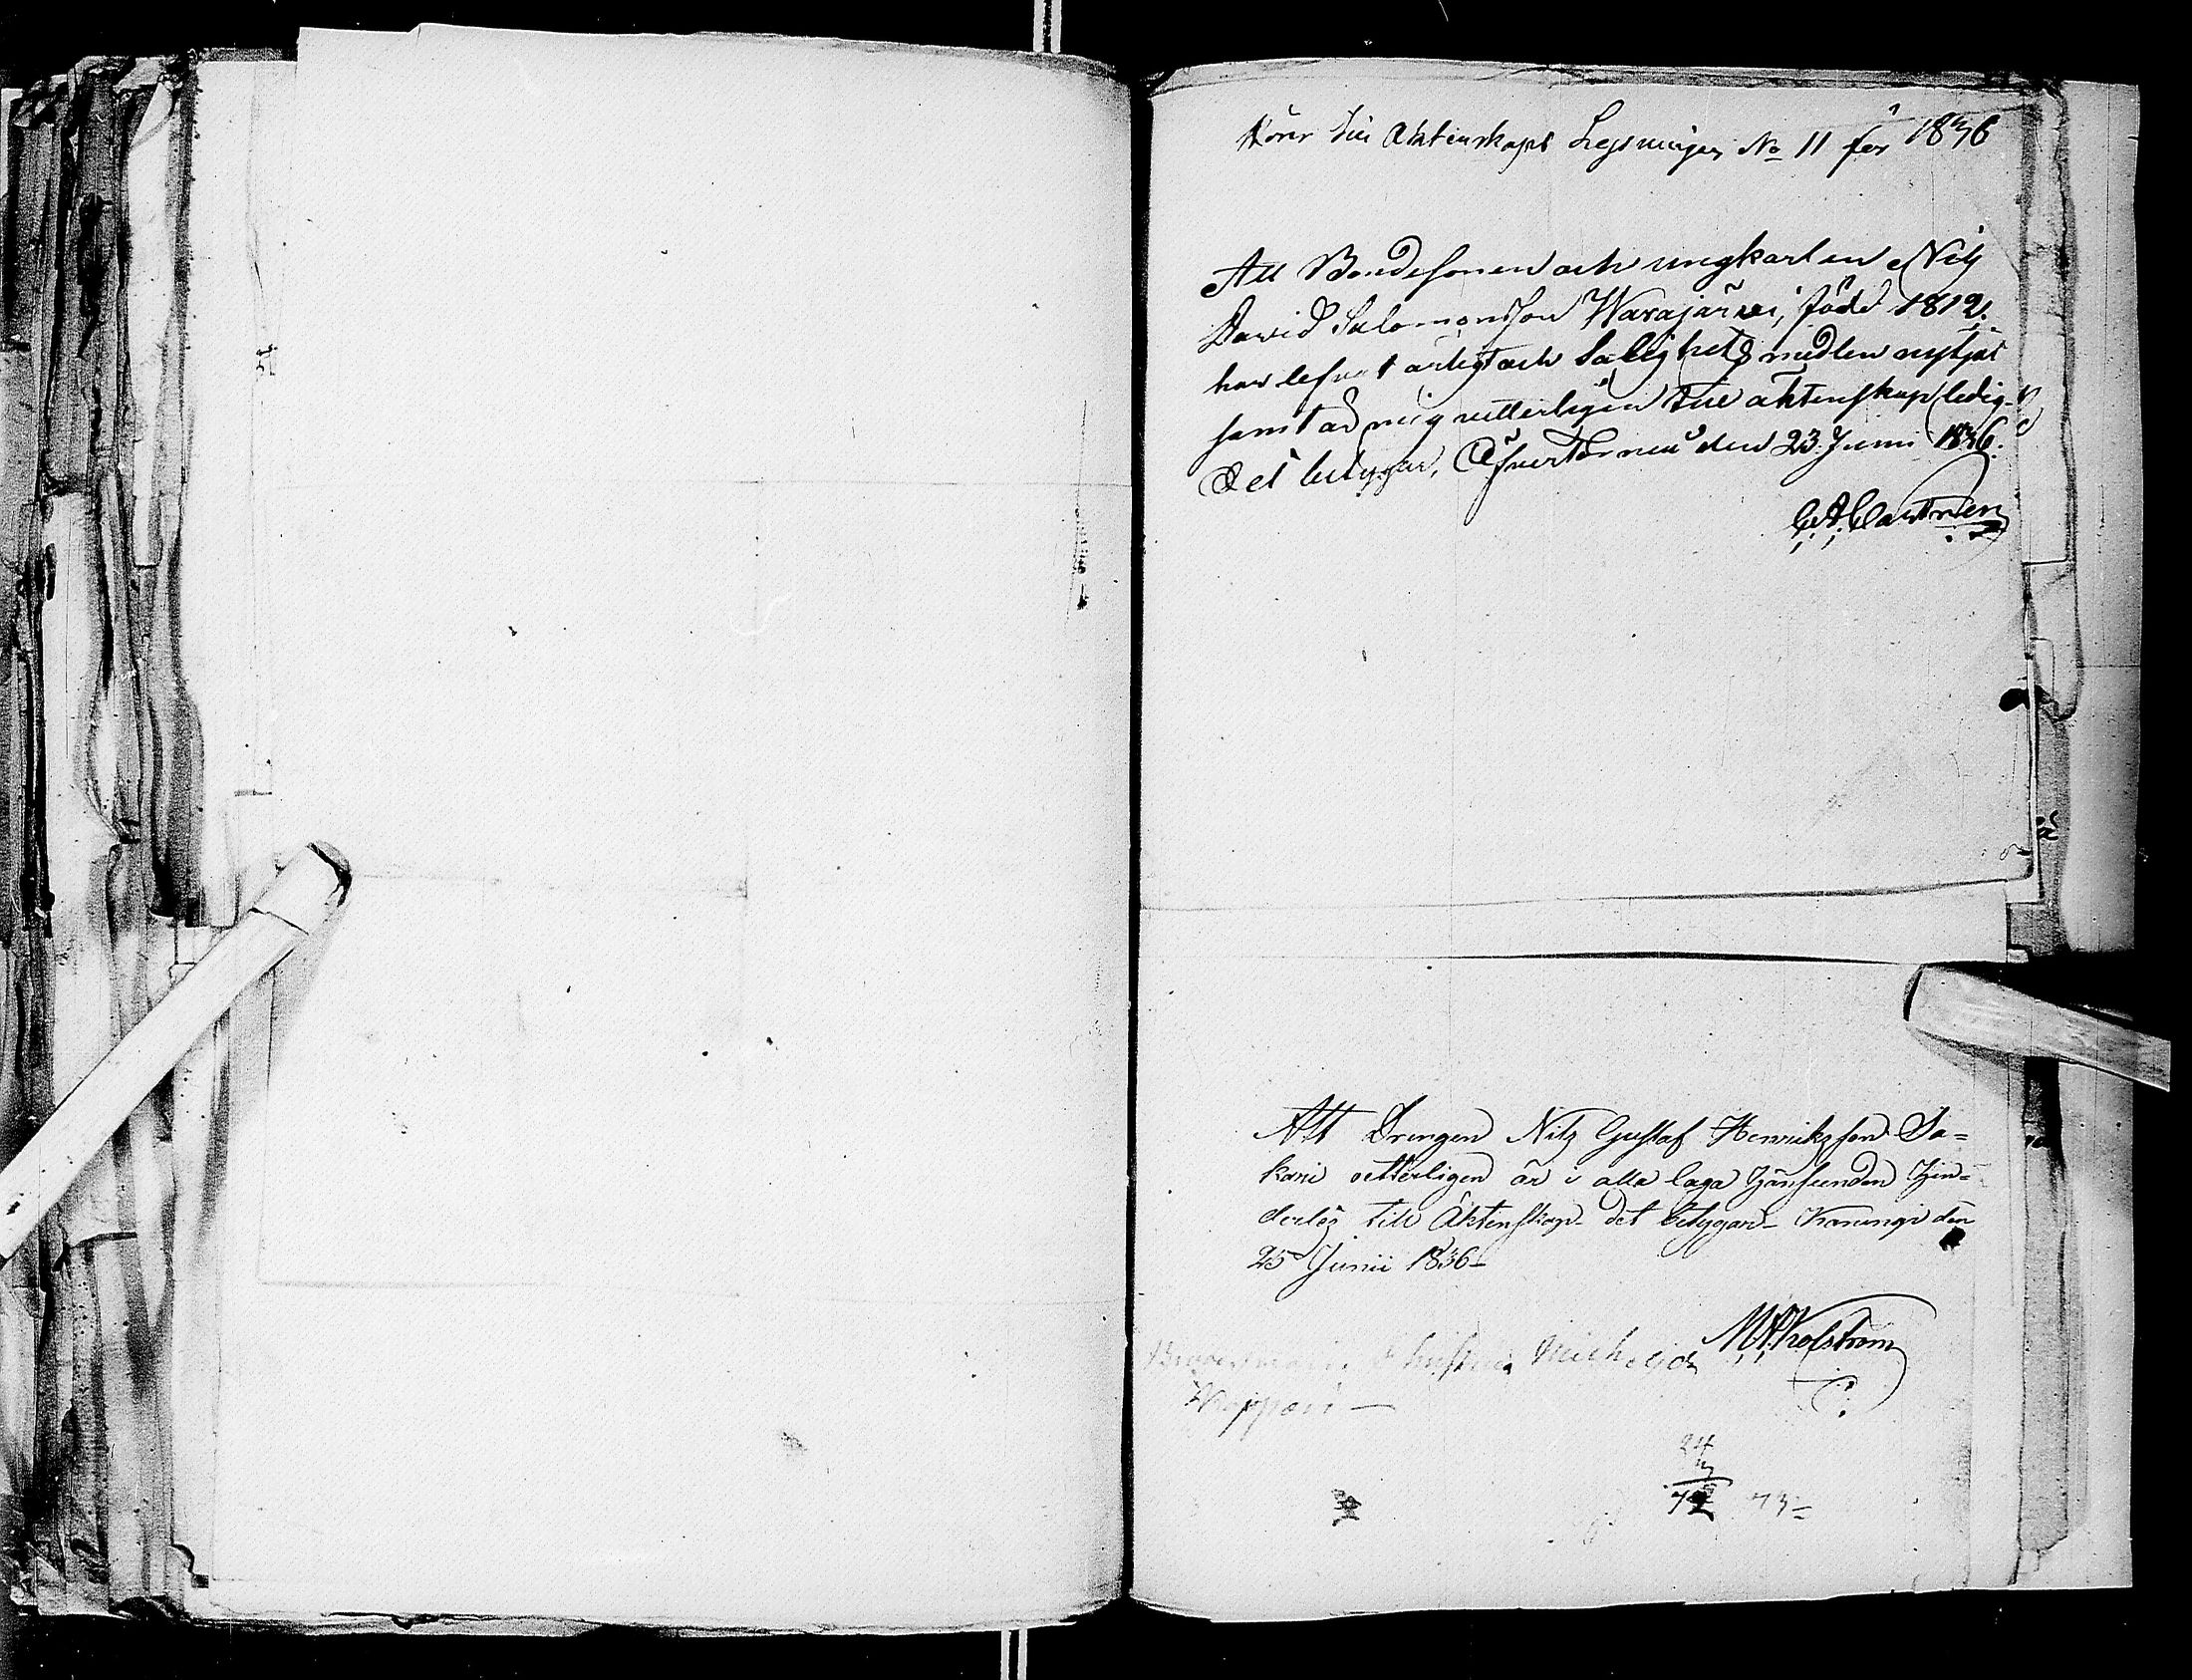 Hörer till Äktenskaps Lysningen No 11 för 1836
Att Bondesonen och ungkarlen Nils
David Salomonsson Warajärvi, född 1812,
har lefvat ärligt och Salighets medlen nyttjat
samt är mig vetterligen till äktenskap ledig
Det betygar, Öfvertorneå den 23 Junii 1836.
C. A. Castrén
Att Drengen Nils Gustaf Henriksson Sa-
kari vetterligen är i alla laga hänseenden hin-
derlös till Äktenskap det betygar Karungi den
25 Junii 1836
M. A. Kolström
Christina Michelsd
24
3
72 73